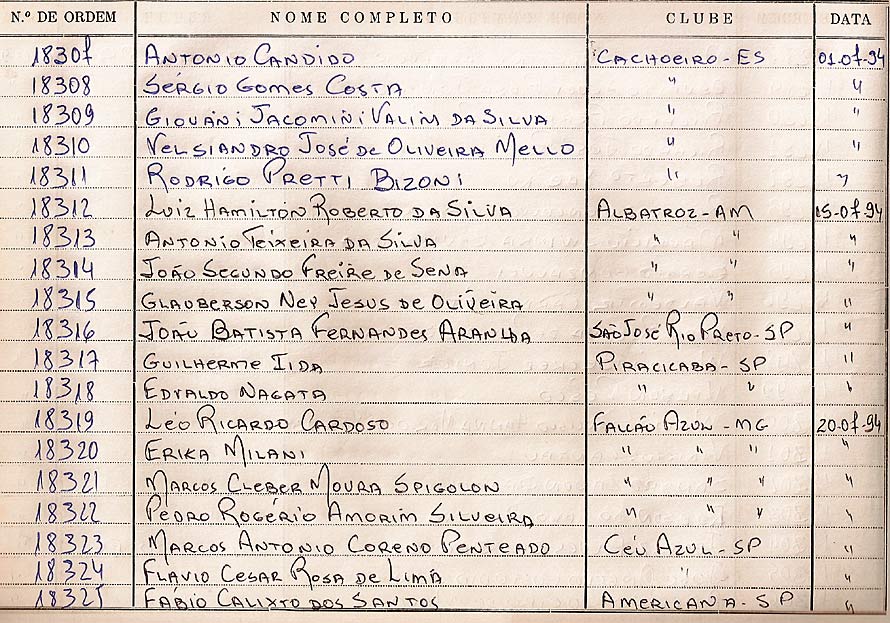 N.º DE ORDEM NOME COMPLETO CLUBE DATA
18307 ANTONIO CANDIDO CACHOEIRO - ES 01-07-94
18308 SÉRGIO GOMES COSTA " "
18309 GIOVANI JACOMINI VALIM DA SILVA " "
18310 VELSIANDRO JOSÉ DE OLIVEIRA MELLO " "
18311 RODRIGO PRETTI BIZONI " "
18312 LUIZ HAMILTON ROBERTO DA SILVA ALBATROZ - AM 15-07-94
18313 ANTONIO TEIXEIRA DA SILVA " " "
18314 JOÃO SEGUNDO FREIRE DE SENA " " "
18315 GLAUBERSON NEY JESUS DE OLIVEIRA " " "
18316 JOÃO BATISTA FERNANDES ARANHA SÃO JOSÉ RIO PRETO - SP "
18317 GUILHERME IIDA PIRACICABA - SP "
18318 EDVALDO NAGATA " " "
18319 LÉO RICARDO CARDOSO FALCÃO AZUL - MG 20-07-94
18320 ERIKA MILANI " " " "
18321 MARCOS CLEBER MOURA SPIGOLON " " " "
18322 PEDRO ROGÉRIO AMORIM SILVEIRA " " " "
18323 MARCOS ANTONIO CORENO PENTEADO CÉU AZUL - SP "
18324 FLAVIO CESAR ROSA DE LIMA " "
18325 FÁBIO CALIXTO DOS SANTOS AMERICANA - SP "